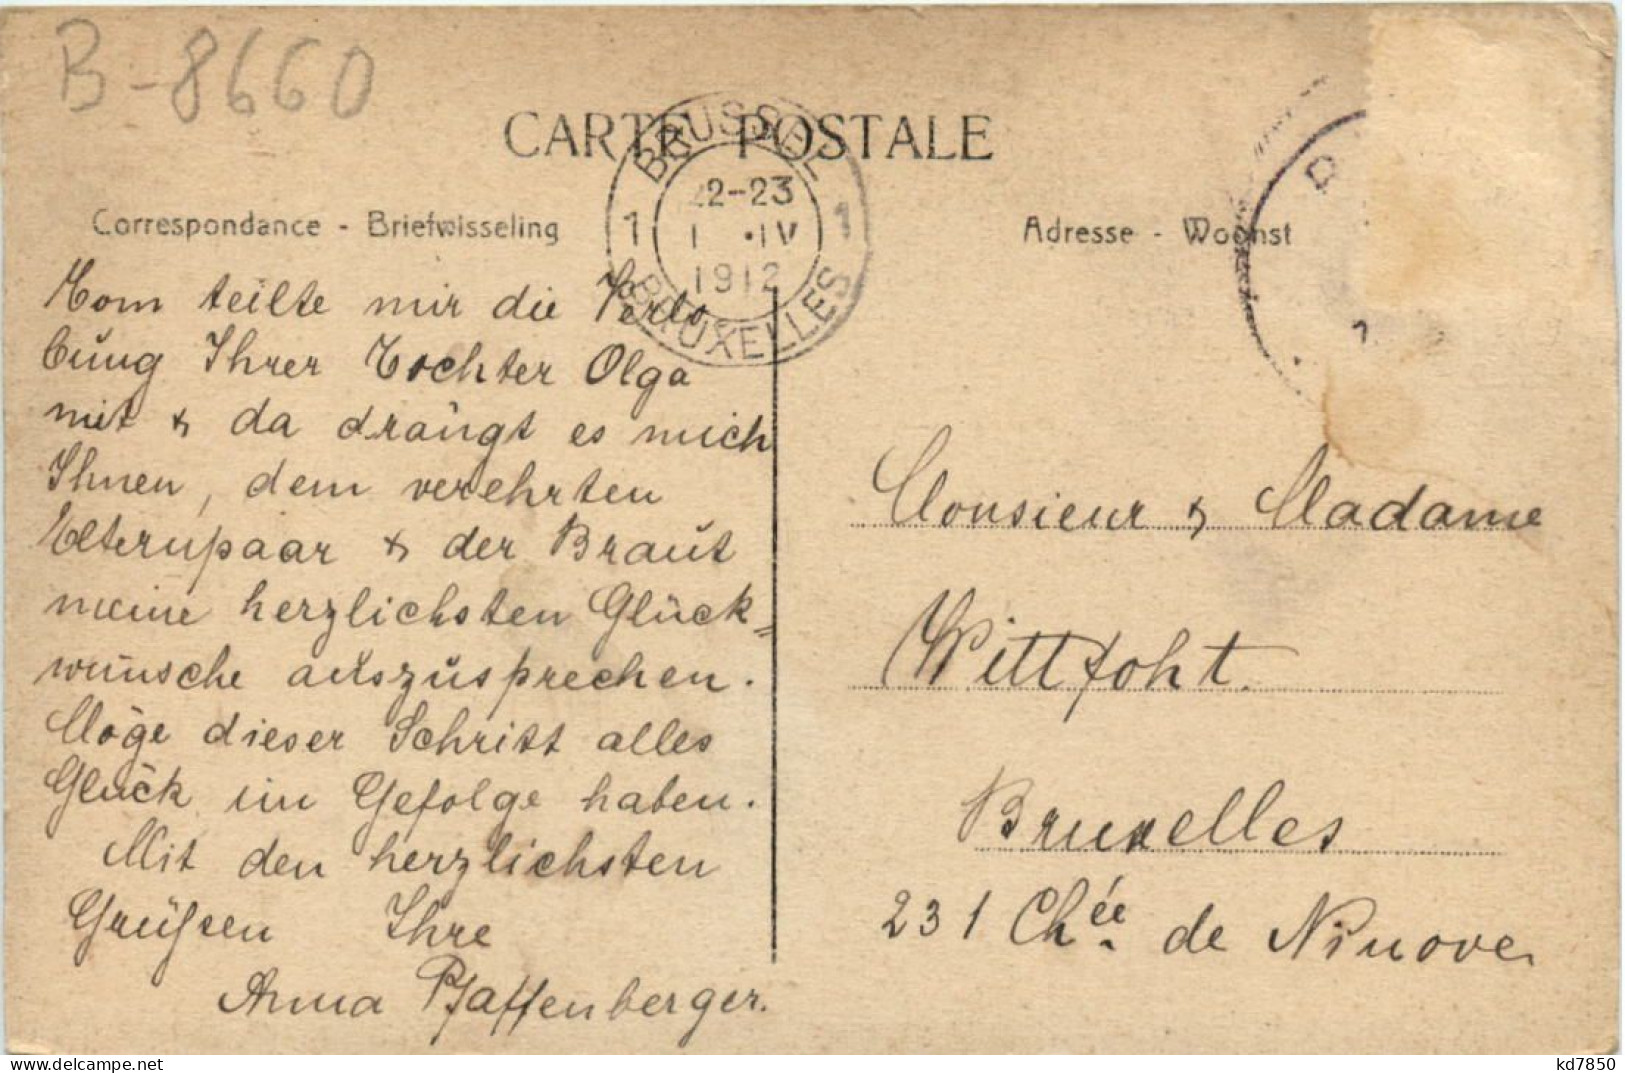 B-8660
CARTE POSTALE
BRUSSEL
22-23
1 1 .IV 1
1912
BRUXELLES
Correspondance - Briefwisseling
Adresse - Woonst
Tom teilte mir die Verlo
bung Ihrer Tochter Olga
mit & da drängt es mich
Ihnen, dem verehrten
Elternpaar & der Braut
meine herzlichsten Glück=
wünsche auszusprechen.
Möge dieser Schritt alles
Glück im Gefolge haben.
Mit den herzlichsten
Grüßen Ihre
Anna Pfaffenberger.
Monsieur & Madame
Wittfoht.
Bruxelles
231 Chée. de Ninove.
www.delcampe.net
kd7850